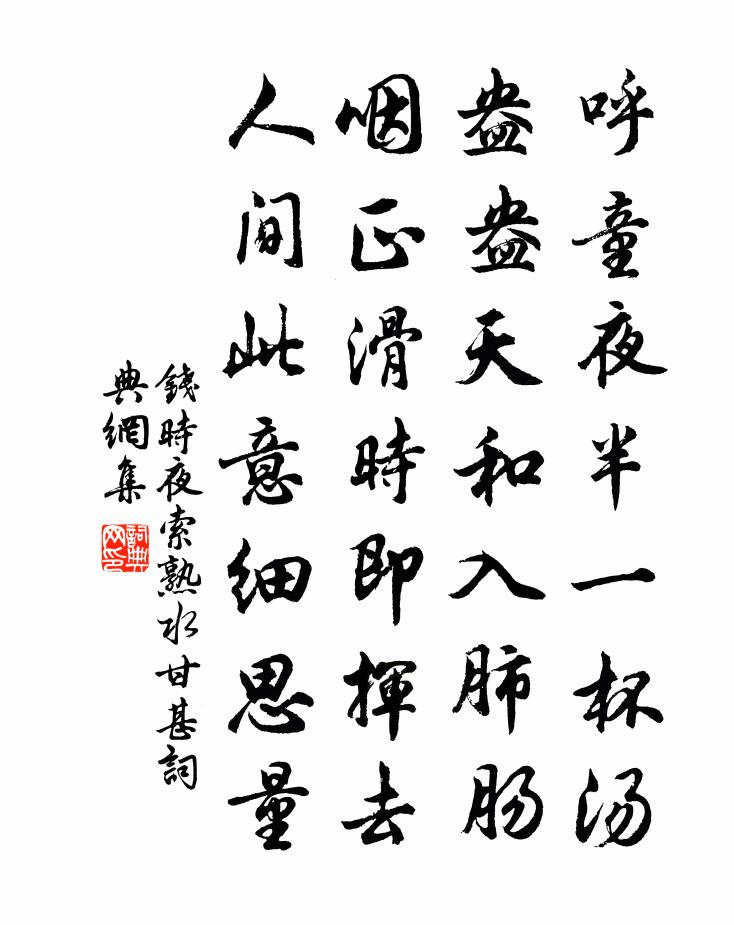 呼童夜半一杯汤
盎盎天和入肺肠
咽正滑時即揮去
人间此意细思量
錢時夜索熟水甘甚詞
典網集
詞典网印